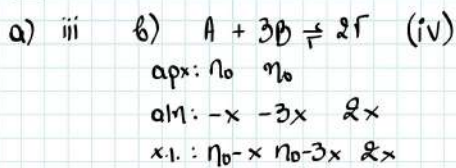 α) iii β) A + 3B ⇌ 2Γ (iv)
αρχ: n₀ n₀
αλλ: -x -3x 2x
χ.ι.: n₀-x n₀-3x 2x